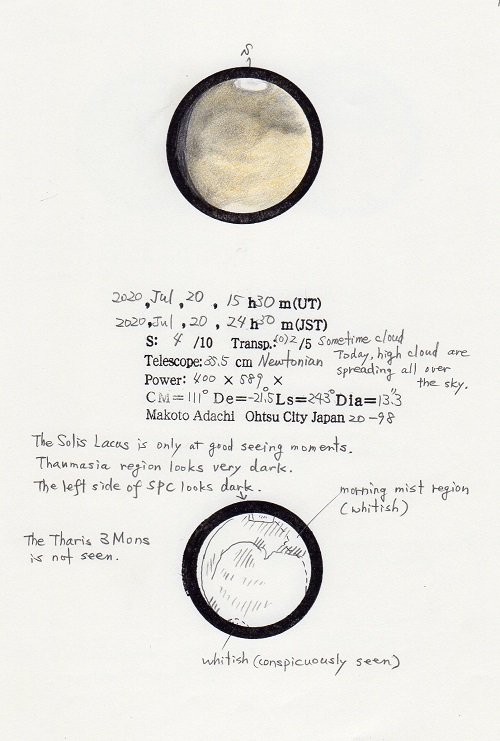 S
2020, Jul, 20, 15 h 30 m (UT)
2020, Jul, 20, 24 h 30 m (JST)
S: 4 /10 Transp.: (0) 2 /5 Sometime cloud
Today, high cloud are
spreading all over
the sky.
Telescope: 35.5 cm Newtonian
Power: 400 × 589 ×
CM= 111° De= -21.5° Ls= 243° Dia= 13".3
Makoto Adachi Ohtsu City Japan 20-98
The Solis Lacus is only at good seeing moments.
Thaumasia region looks very dark.
The left side of SPC looks dark.
morning mist region
(whitish)
The Tharis 3 Mons
is not seen.
whitish (conspicuously seen)